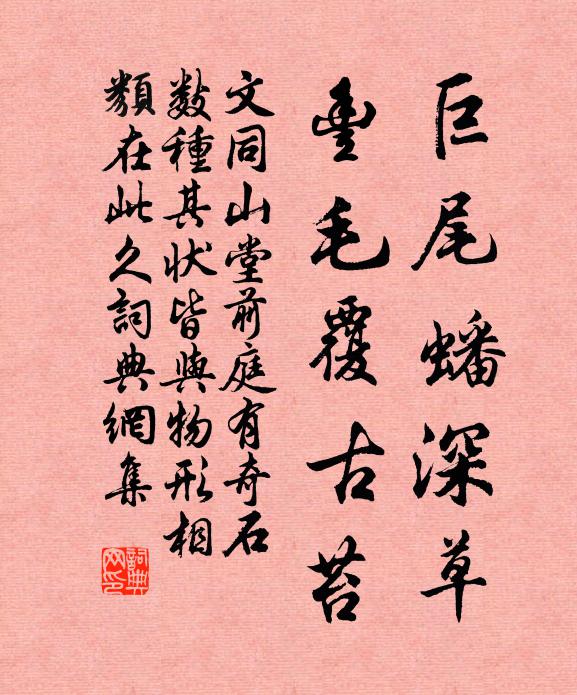 巨尾蟠深草
豊毛覆古苔
文同山堂前庭有奇石
数種其状皆與物形相
類在此久詞典網集
詞典网印